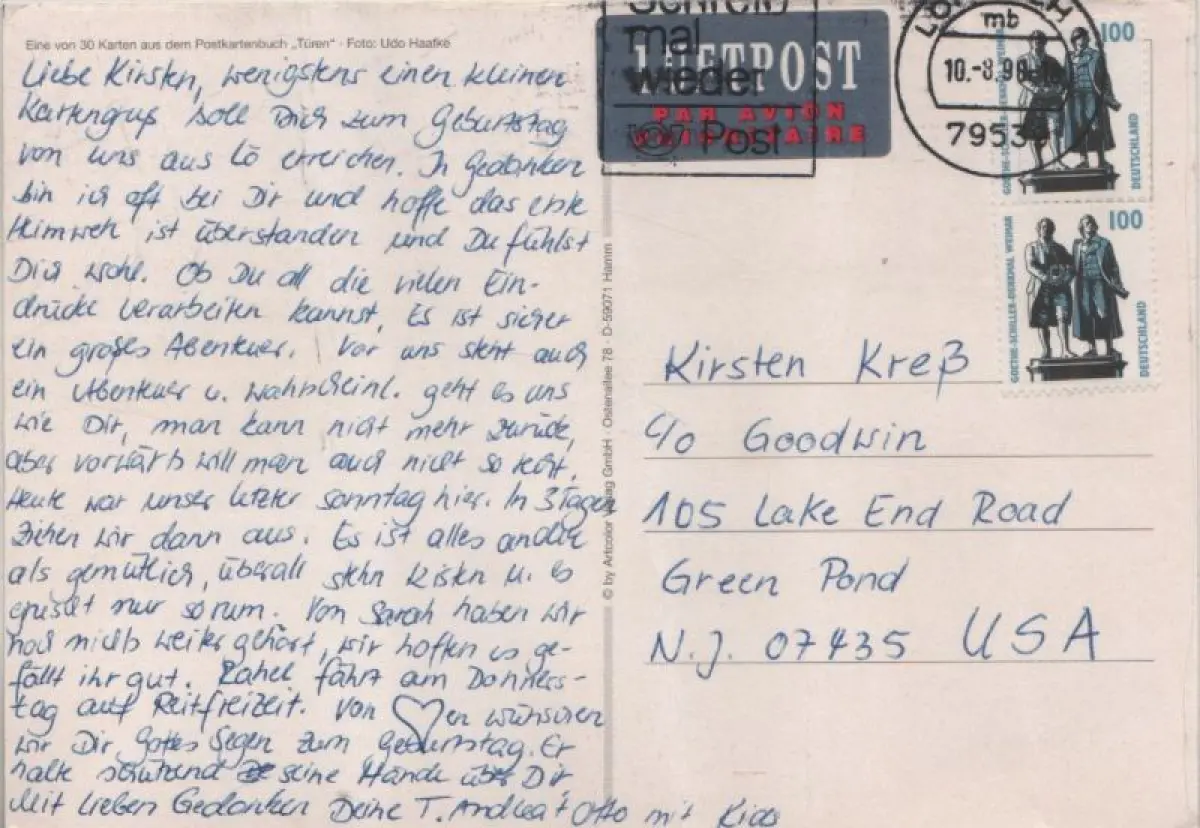 Eine von 30 Karten aus dem Postkartenbuch „Türen“ · Foto: Udo Haafke
Liebe Kirsten, wenigstens einen kleinen
Kartengruß soll Dich zum Geburtstag
von uns aus Lö erreichen. In Gedanken
bin ich oft bei Dir und hoffe das erste
Heimweh ist überstanden und Du fühlst
Dich wohl. Ob Du all die vielen Ein-
drücke verarbeiten kannst, Es ist sicher
ein großes Abenteuer. Vor uns steht auch
ein Abenteuer u. wahrscheinl. geht es uns
wie Dir, man kann nicht mehr zurück,
aber vorwärts will man auch nicht so recht.
Heute war unser letzter Sonntag hier. In 3 Tagen
ziehen wir dann aus. Es ist alles andre
als gemütlich, überall stehn Kisten u. es
nur so rum. Von Sarah haben wir
noch nichts weiter gehört, wir hoffen es ge-
fällt ihr gut. Rahel fährt am Donners-
tag auf Reitfreizeit. Von ♡en wünschen
wir Dir Gottes Segen zum Geburtstag. Er
halte schützend seine Hände über Dir
Mit lieben Gedanken Deine T. Andrea + Otto mit Kids
© by Artcolor Verlag GmbH · Ostenallee 78 · D-59071 Hamm
Schreib
mal
wieder
Post
LUFTPOST
PAR AVION
mb
10.-8.98
79539
100
GOETHE-SCHILLER-DENKMAL WEIMAR
DEUTSCHLAND
100
GOETHE-SCHILLER-DENKMAL WEIMAR
DEUTSCHLAND
Kirsten Kreß
c/o Goodwin
105 Lake End Road
Green Pond
N.J. 07435 USA